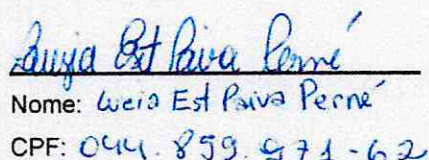 Luzia Est Paiva Perné
Nome: Lucia Est Paiva Perné
CPF: 044.859.971-62